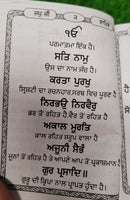 ਜਪੁ ਜੀ
੧ੳ
ਪਰਮਾਤਮਾ ਇੱਕ ਹੈ।
ਸਤਿ ਨਾਮੁ
ਉਸ ਦਾ ਨਾਮ ਸੱਚ ਹੈ।
ਕਰਤਾ ਪੁਰਖੁ
ਸ੍ਰਿਸ਼ਟੀ ਦਾ ਰਚਨਹਾਰ ਸਰਬ ਵਿਚ ਪੂਰਣ ਹੈ
ਨਿਰਭਉ ਨਿਰਵੈਰੁ
ਡਰ ਤੋਂ ਰਹਿਤ ਹੈ ਵੈਰ ਤੋਂ ਰਹਿਤ ਹੈ
ਅਕਾਲ ਮੂਰਤਿ
ਕਾਲ ਰਹਿਤ ਸਰੂਪ ਵਾਲਾ ਹੈ
ਅਜੂਨੀ ਸੈਭੰ
ਜੂਨਾਂ ਤੋਂ ਰਹਿਤ ਹੈ ਤੇ ਆਪਣੇ ਆਪ ਤੋਂ ਪ੍ਰਕਾਸ਼ਮਾਨ ਹੈ
ਗੁਰ ਪ੍ਰਸਾਦਿ॥
ਗੁਰੂ ਦੀ ਕ੍ਰਿਪਾ ਨਾਲ ਪ੍ਰਾਪਤ ਹੁੰਦਾ ਹੈ।